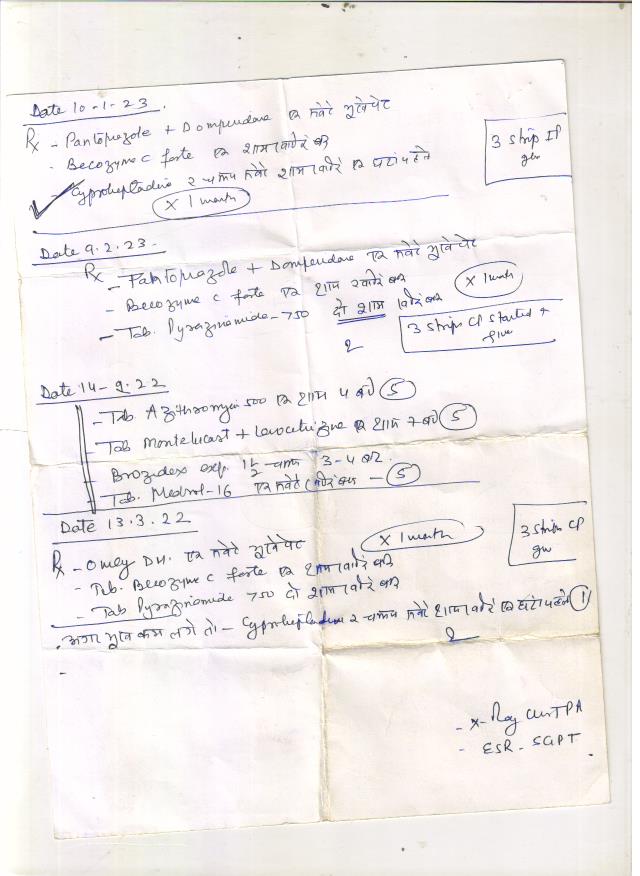 Date 10-1-23.
Rx - Pantoprazole + Domperidone एक सवेरे भूखे पेट
- Becozyme C forte एक शाम खाने के बाद
- Cyproheptadine 2 चम्मच सवेरे शाम खाने के एक घंटा पहले
X 1 month
3 strip IP
Date 9.2.23.
Rx - Pantoprazole + Domperidone एक सवेरे भूखे पेट
- Becozyme C forte एक शाम खाने के बाद
X 1 month
- Tab. Pyrazinamide - 750 दो शाम खाने के बाद
2
3 strips CP started &
Date 14-9-22
- Tab. Azithromycin 500 एक शाम 4 बजे (5)
- Tab Montelucast + Levocetrizine एक शाम 7 बजे (5)
- Brozedex exp. 1 1/2 चम्मच 3-4 बार
- Tab. Medrol-16 एक सवेरे - (5)
Date 13.3.22
Rx - Omez DM. एक सवेरे भूखे पेट
X 1 month
3 strips CP
- Tab. Becozyme C forte एक शाम खाने के बाद
- Tab Pyrazinamide 750 दो शाम खाने के बाद
. अगर भूख कम लगे तो - Cyproheptadine 2 चम्मच सवेरे शाम खाने के एक घंटा पहले (1)
2
- X-Ray Chest PA
- ESR - SGPT